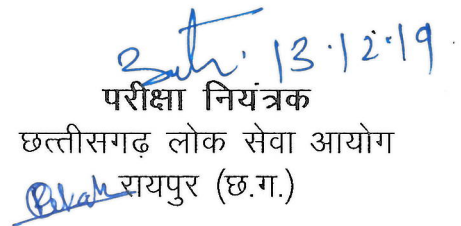 13.12.19
परीक्षा नियंत्रक
छत्तीसगढ़ लोक सेवा आयोग
रायपुर (छ.ग.)